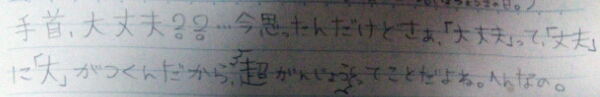 手首、大丈夫??…今思ったんだけどさぁ、「大丈夫」って、「丈夫」
に「大」がつくんだから、超がんじょうってことだよね。へんなの。